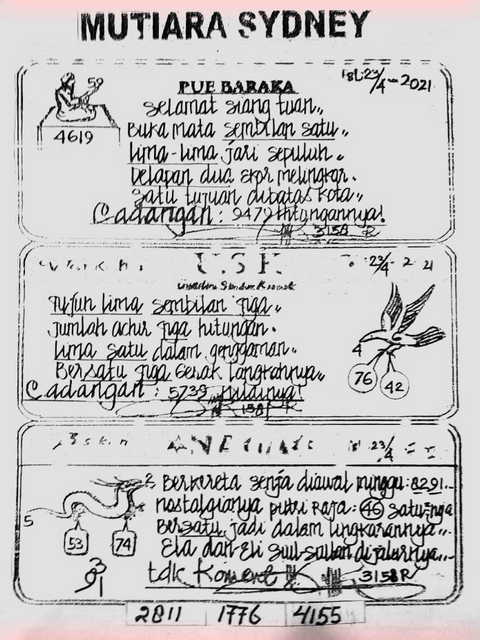 MUTIARA SYDNEY
59
4619
PUE BARAKA
23/4-2021
Selamat siang tuan,,
Buka mata sembilan satu,,
Lima-lima jari sepuluh.
Delapan dua ekor melingkar.
Satu tujuan dibatas kota,,
Cadangan: 9479 hitungannya!
3158 R
U.S.K
23/4-2 21
Tujuh lima sembilan tiga,,
Jumlah achir tiga hitungan.
Lima satu dalam genggaman,,
Bersatu tiga gerak langkahnya,,
Cadangan: 5739 nilainya!
4
76
42
23/4
Berkereta senja diawal minggu:8291...
nostalgianya putri Raja:46 satu-nga
Bersatu jadi dalam lingkarannya,,.
Ela dan Eli
tdk
3158R
5
53
74
2811 1776 4155